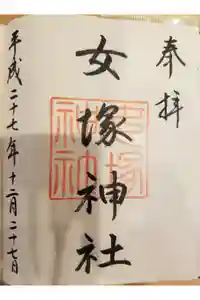 奉拝
女塚神社
平成二十七年十二月二十七日
女塚神社